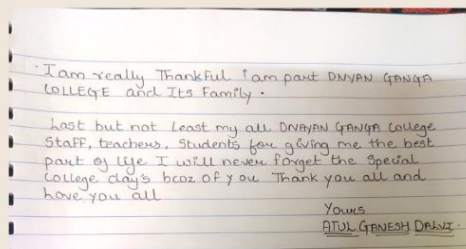 I am really Thankful i am part DNYAN GANGA
COLLEGE and Its Family.
Last but not Least my all DNAYAN GANGA College
Staff, teachers, Students for giving me the best
part of life I will never forget the Special
College day's bcoz of you Thank you all and
Love you all
Yours
ATUL GANESH DALVI.